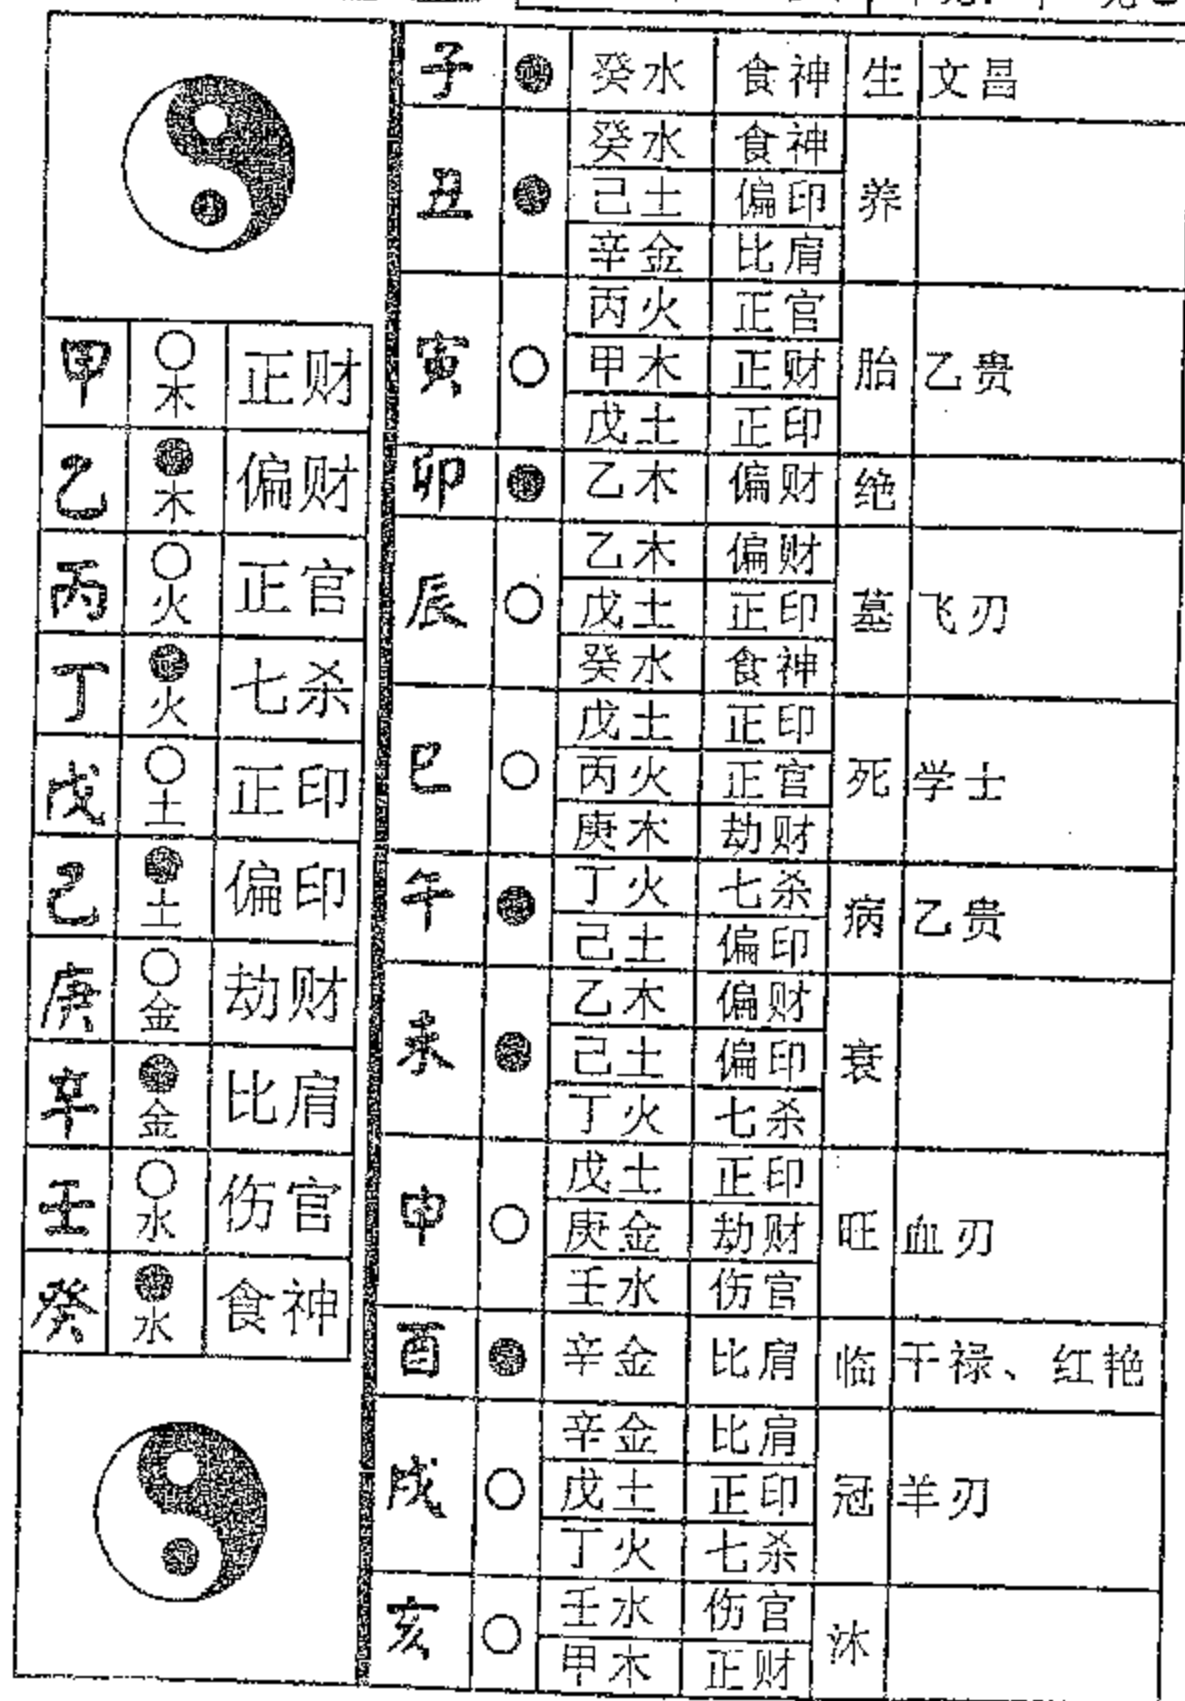 甲 木 正财
乙 木 偏财
丙 火 正官
丁 火 七杀
戊 土 正印
己 土 偏印
庚 金 劫财
辛 金 比肩
壬 水 伤官
癸 水 食神
子 癸水 食神 生 文昌
丑 癸水 食神 养
己土 偏印
辛金 比肩
寅 丙火 正官 胎 乙贵
甲木 正财
戊土 正印
卯 乙木 偏财 绝
辰 乙木 偏财 墓 飞刃
戊土 正印
癸水 食神
巳 戊土 正印 死 学士
丙火 正官
庚木 劫财
午 丁火 七杀 病 乙贵
己土 偏印
未 乙木 偏财 衰
己土 偏印
丁火 七杀
申 戊土 正印 旺 血刃
庚金 劫财
壬水 伤官
酉 辛金 比肩 临 干禄、红艳
戌 辛金 比肩 冠 羊刃
戊土 正印
丁火 七杀
亥 壬水 伤官 沐
甲木 正财